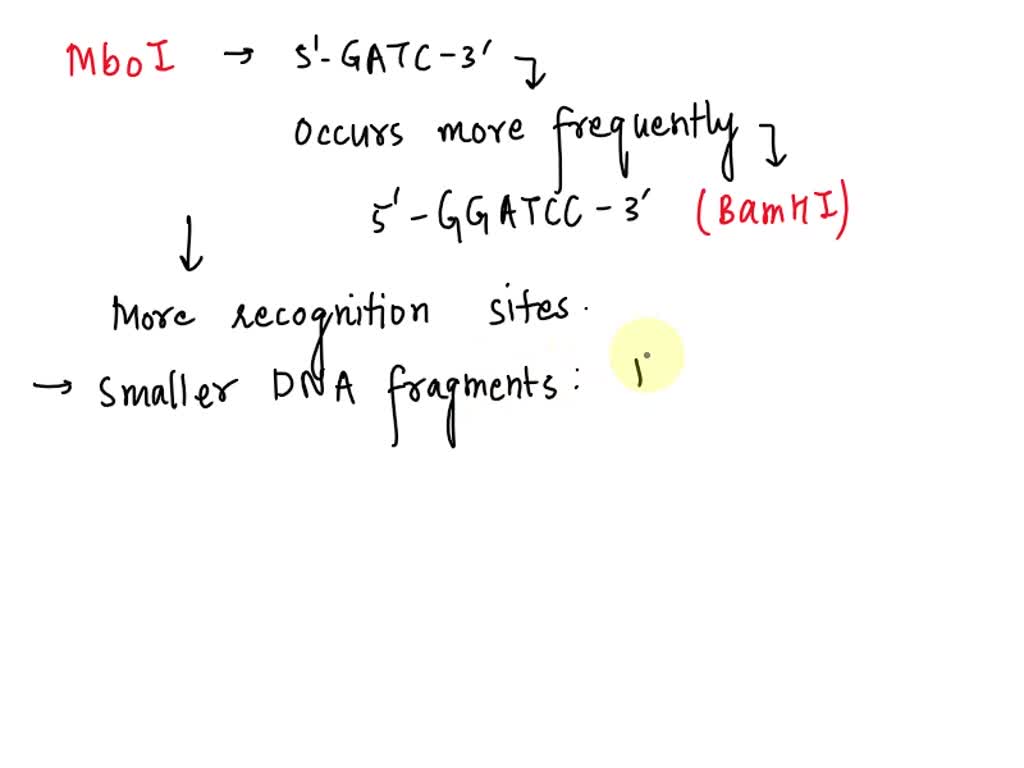 MboI → 5'-GATC-3'
Occurs more frequently
5'-GGATCC-3' (BamHI)
More recognition sites.
→ Smaller DNA fragments: